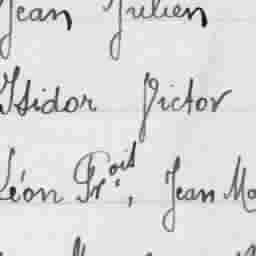 Jean Julien
Isidor Victor
Léon Fr.ois, Jean Ma